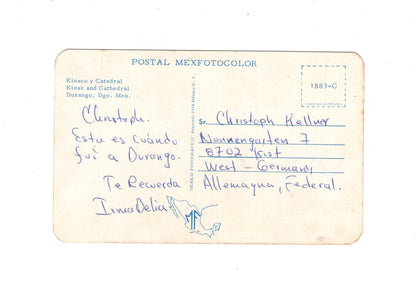 POSTAL MEXFOTOCOLOR
Kiosco y Catedral
Kiosk and Cathedral
Durango, Dgo. Mex.
1885-C
Christoph.
Esta es cuándo
fuí a Durango.
Te Recuerda
Irma Delia
Sr. Christoph Kellner
Nonnengarten 7
8702 Kist
West-Germany
Allemagna, Federal.
MF